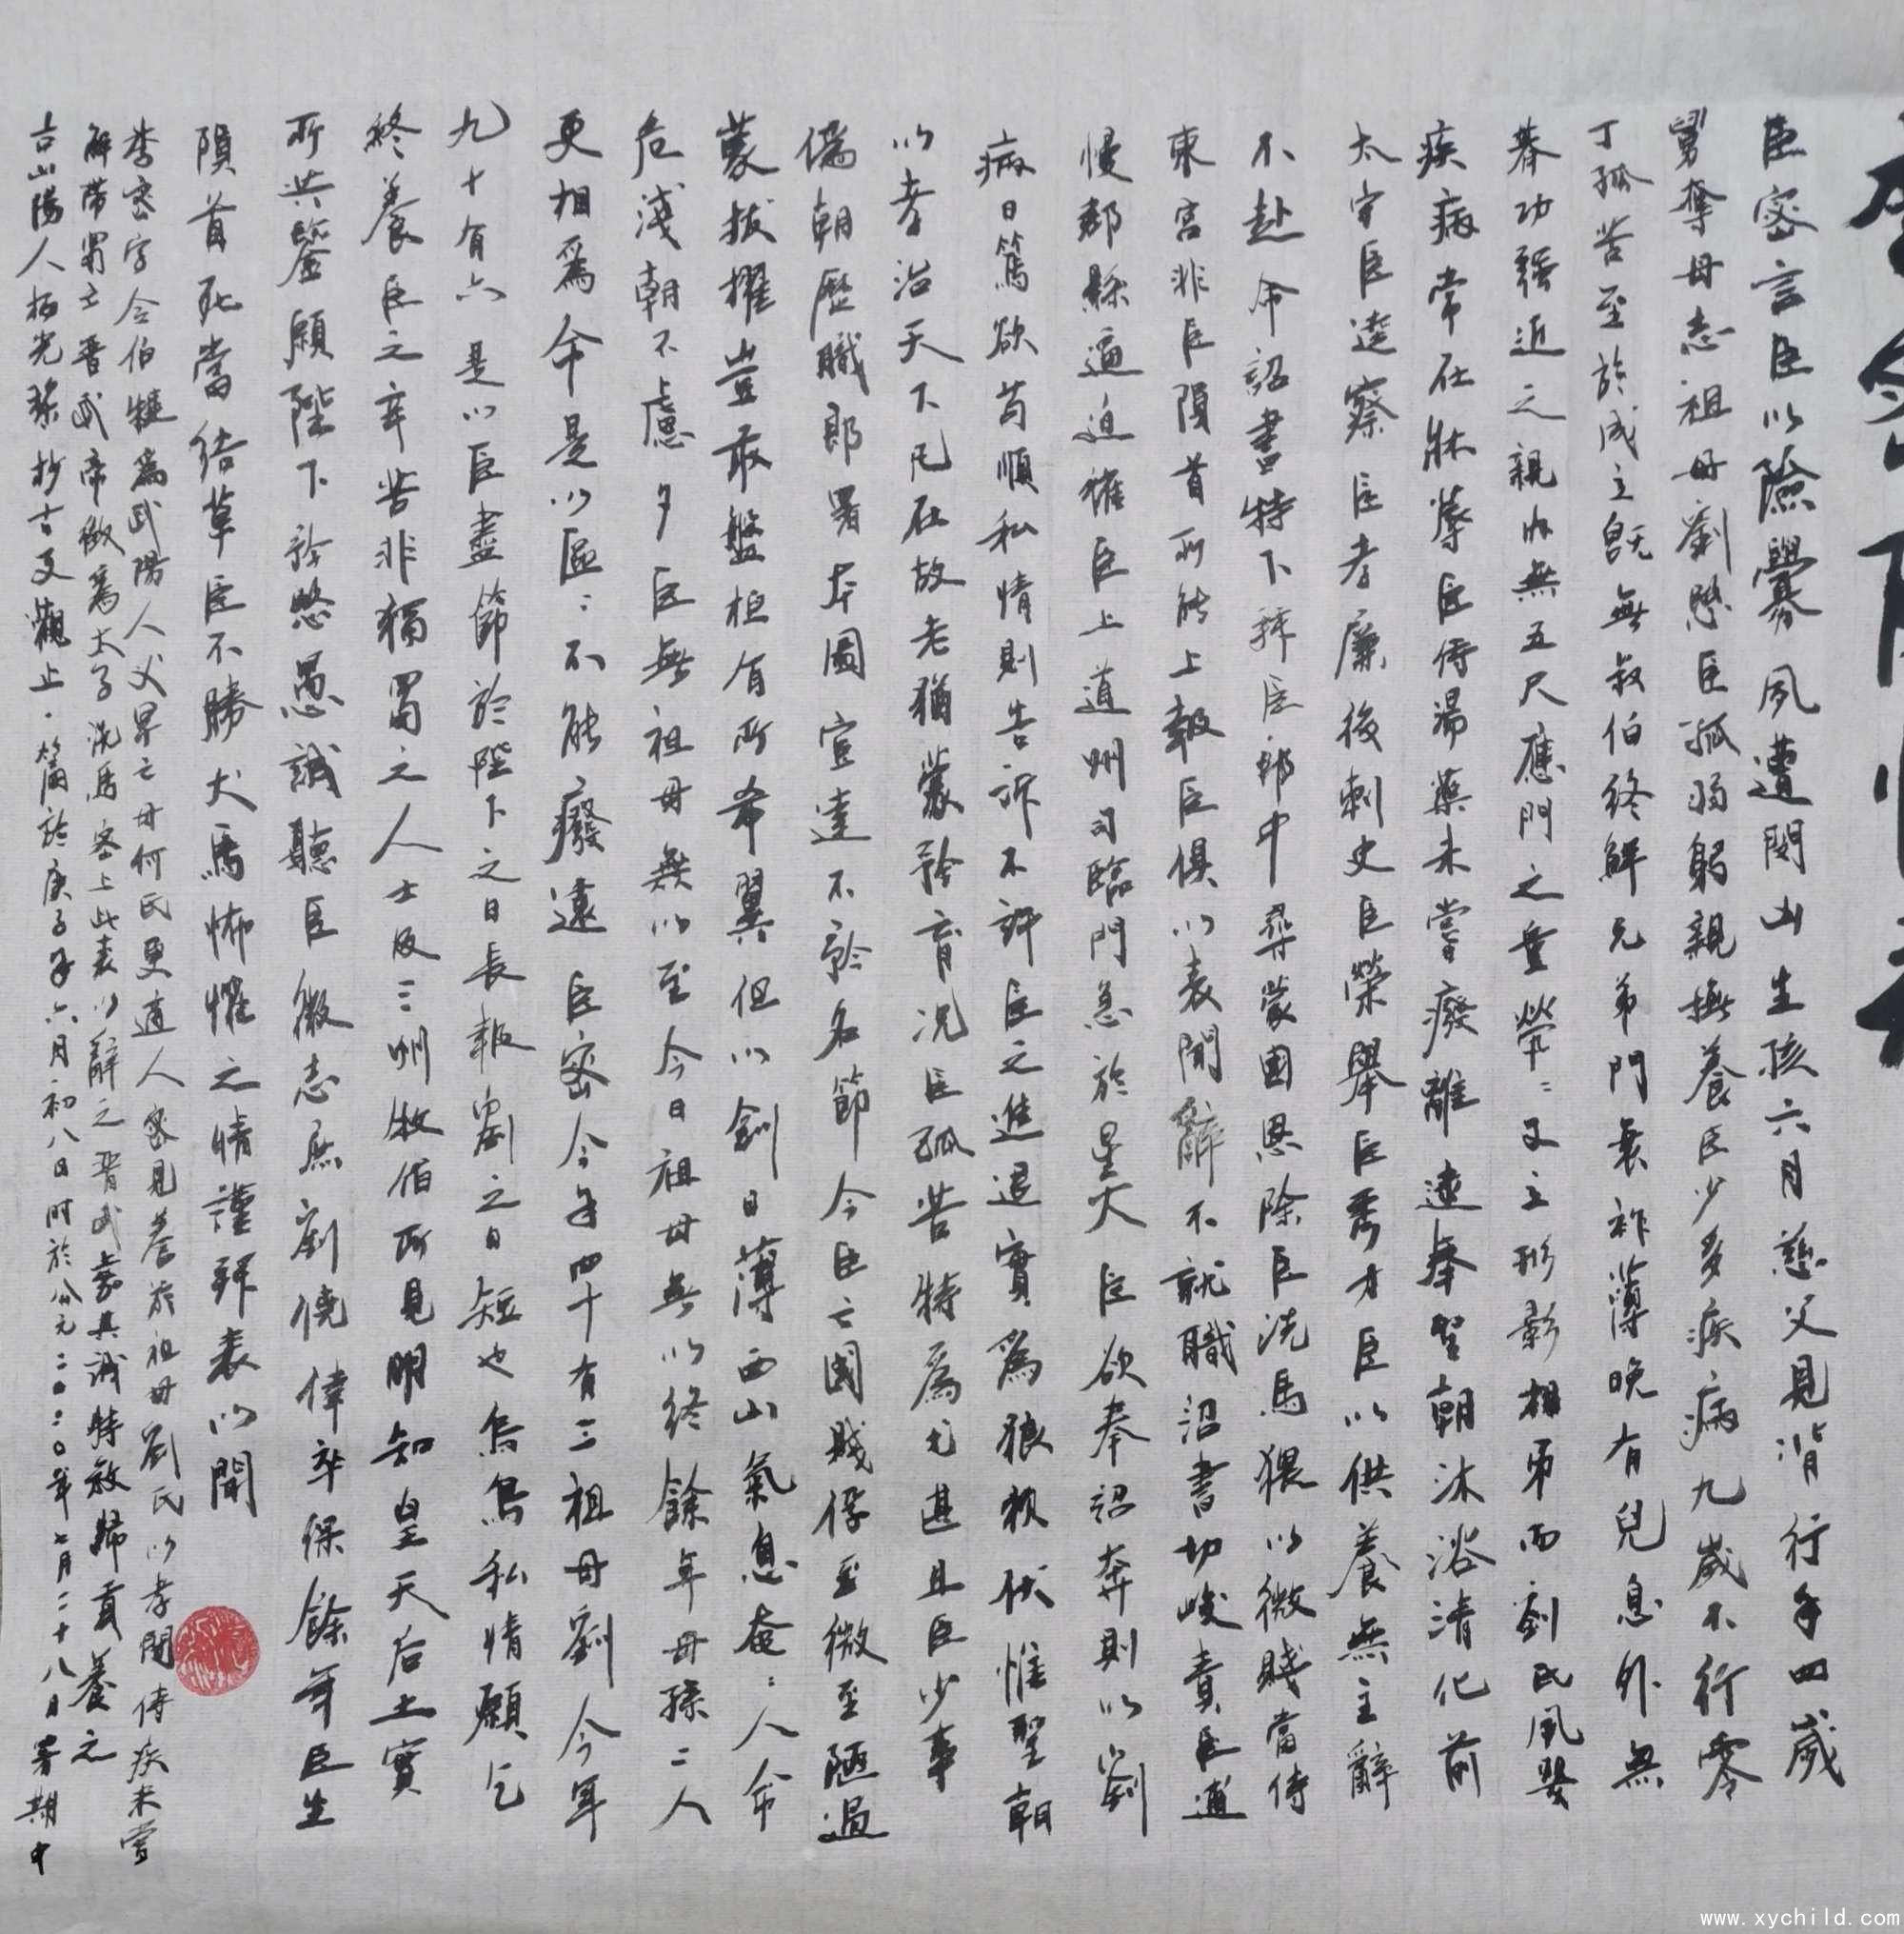 李令伯陳情表
臣密言臣以險釁夙遭閔凶生孩六月慈父見背行年四歲
舅奪母志祖母劉愍臣孤弱躬親撫養臣少多疾病九歲不行零
丁孤苦至於成立既無叔伯終鮮兄弟門衰祚薄晚有兒息外無
朞功強近之親內無五尺應門之童煢〻孑立形影相弔而劉氏夙嬰
疾病常在牀蓐臣侍湯藥未嘗癈離逮奉聖朝沐浴清化前
太守臣逵察臣孝廉後刺史臣榮舉臣秀才臣以供養無主辭
不赴命詔書特下拜臣郎中尋蒙國恩除臣洗馬猥以微賤當侍
東宮非臣隕首所能上報臣俱以表聞辭不就職詔書切峻責臣逋
慢郡縣逼迫催臣上道州司臨門急於星火臣欲奉詔奔則以劉
病日篤欲苟順私情則告訴不許臣之進退實為狼狽伏惟聖朝
以孝治天下凡在故老猶蒙矜育況臣孤苦特為尤甚且臣少事
偽朝歷職郎署本圖宦達不矜名節今臣亡國賤俘至微至陋過
蒙拔擢豈敢盤桓有所希翼但以劉日薄西山氣息奄〻人命
危淺朝不慮夕臣無祖母無以至今日祖母無以終餘年母孫二人
更相為命是以區〻不能癈遠臣密今年四十有三祖母劉今年
九十有六是以臣盡節於陛下之日長報劉之日短也烏鳥私情願乞
終養臣之辛苦非獨蜀之人士及二州牧伯所見明知皇天后土實
所共鑒願陛下矜愍愚誠聽臣微志庶劉僥倖卒保餘年臣生
隕首死當結草臣不勝犬馬怖懼之情謹拜表以聞
李密字令伯犍為武陽人父早亡母何氏更適人密見養於祖母劉氏以孝聞侍疾未嘗
解帶蜀亡晉武帝徵為太子洗馬密上此表以辭之晉武嘉其誠特敕歸賁養之
古山陽人柏光琛抄古文觀止·篇於庚子年六月初八日時於公元二〇二〇年七月二十八日暑期中
www.xychild.com